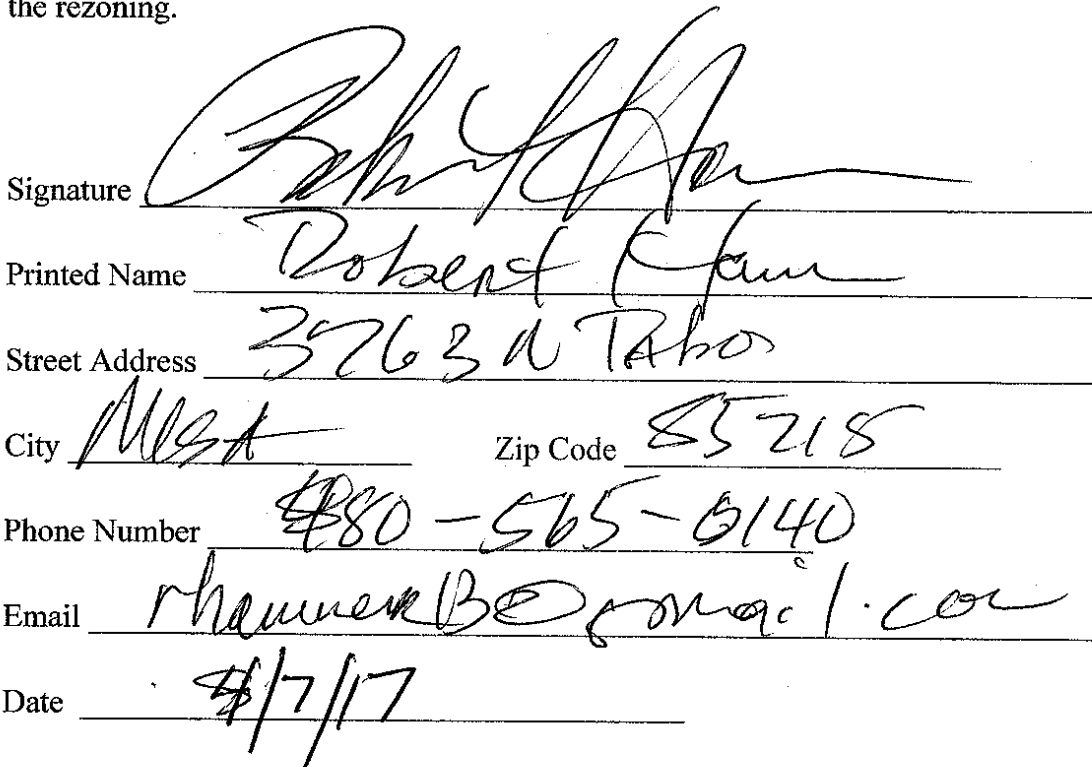 the rezoning.
Signature
Printed Name Robert Ham
Street Address 3763 N
City Mesa Zip Code 85215
Phone Number 480-565-0140
Email @gmail.com
Date /7/17